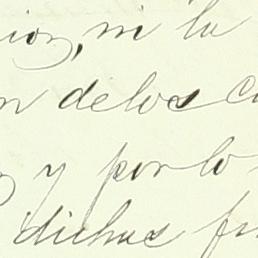 ion, ni la
n de los c
y por lo
dichas fr